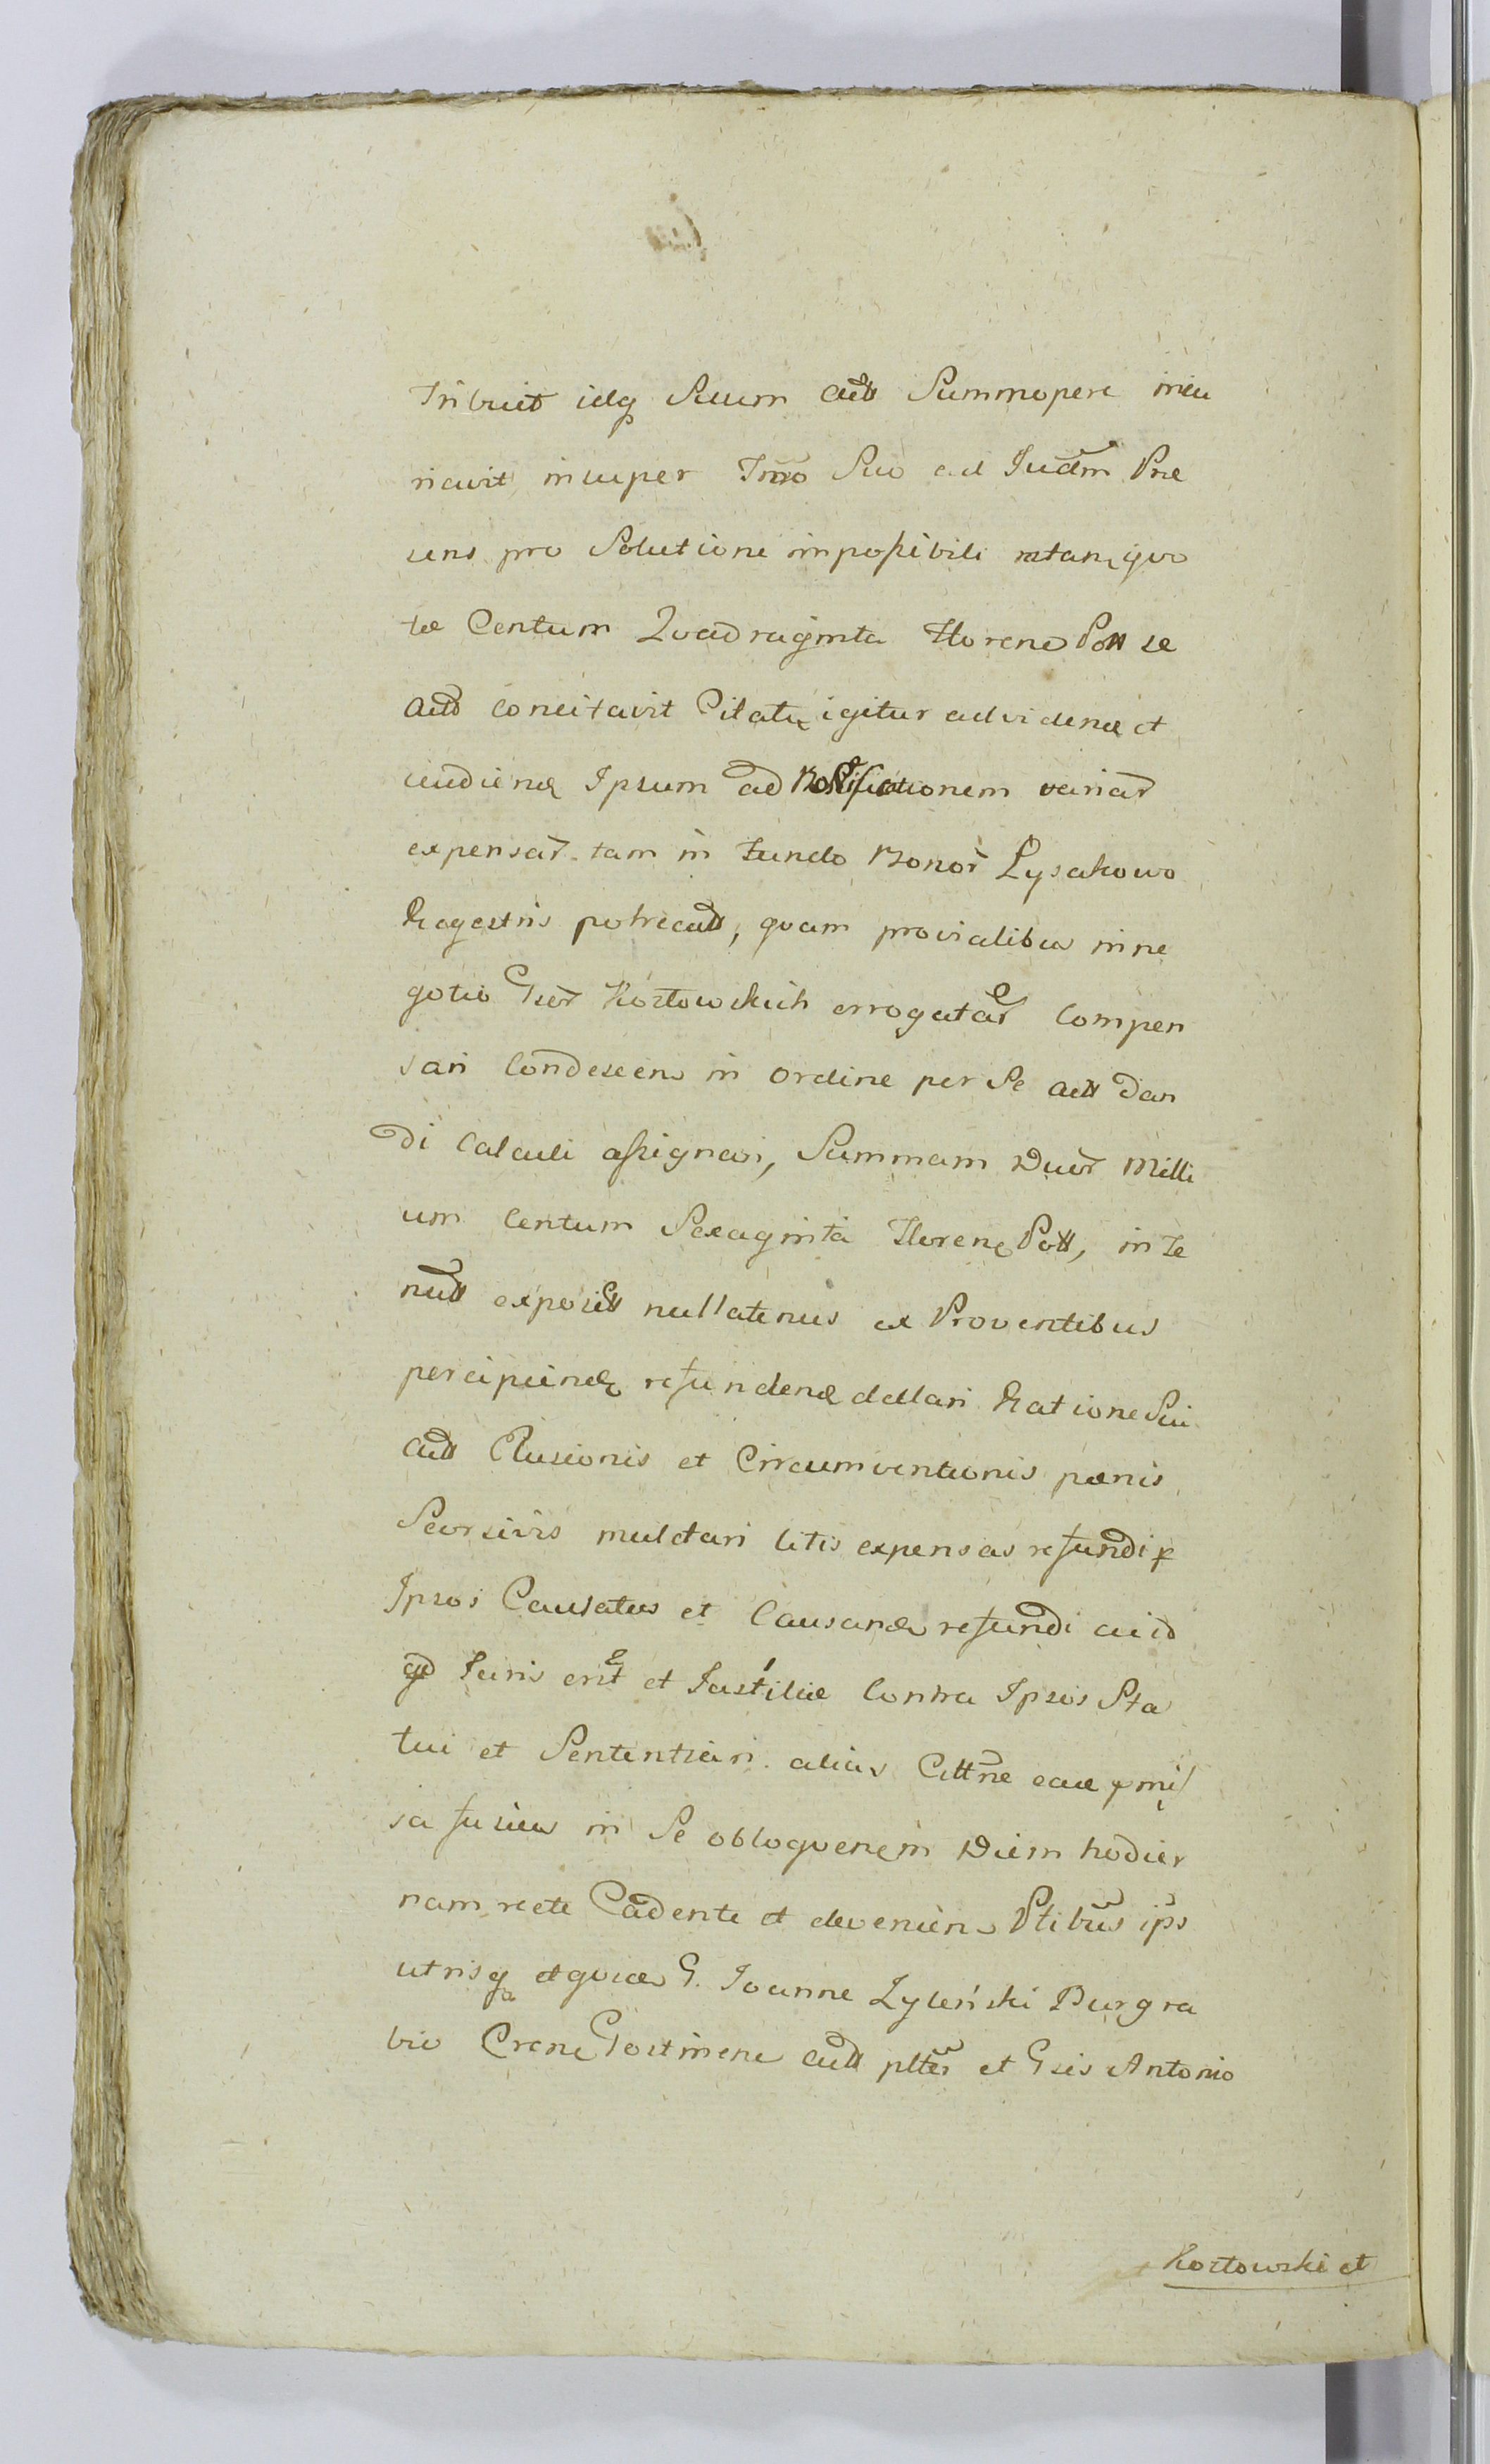 Tribuit idq Suum act Summopere inju
riavit, insuper Imo Suo ad Judm Præ
sens pro Solutione impossibili ratam quo
tæ Centum Quadraginta Floreno Poll se
act concitavit Citatq igitur ad videnq et
audienq Ipsum ad variar
expensar tam in Fundo Bonor Łysakowo
Regestris, quam provialibus in ne
gotio Gser Kozłowskich errogatar Compen
sari Condescen in ordine per Se act Dan
di Calculi assignari, Summam Duor Milli
um Centum Sexaginta Florenq Poll, in Te
nutt exposit nullatenus ex Proventibus
percipiendq refundend dcllari Ratione Sui
act Elusionis et Circumventionis pænis
Seorsivis mulctari litis expensas refundi p
Ipsos Causatas et Causand refundi aut id
qd Juris erit et Justitiæ Contra Ipsos Sta
tui et Sententiari. alias Cittne eadem pmis
sa fusius in Se obloquen in Diem hodier
nam recte Cadente et devenien Ptibus ips
utrisq G. Joanne Zyleński Burgra
bio Crenc Gostinenc act plter et Gsis Antonio
Kozłowski et